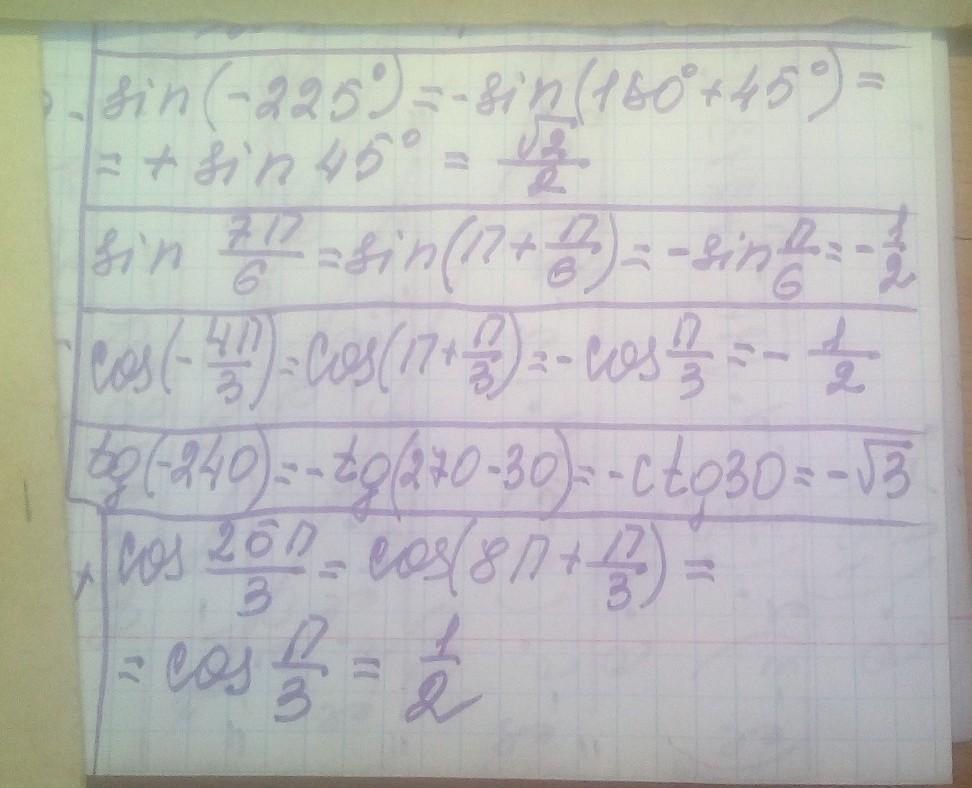 sin(-225°)=-sin(180°+45°)=
=+sin45°=√2/2
sin 7π/6=sin(π+π/6)=-sinπ/6=-1/2
cos(-4π/3)=cos(π+π/3)=-cosπ/3=-1/2
tg(-240)=-tg(270-30)=-ctg30=-√3
cos 25π/3=cos(8π+π/3)=
=cosπ/3=1/2